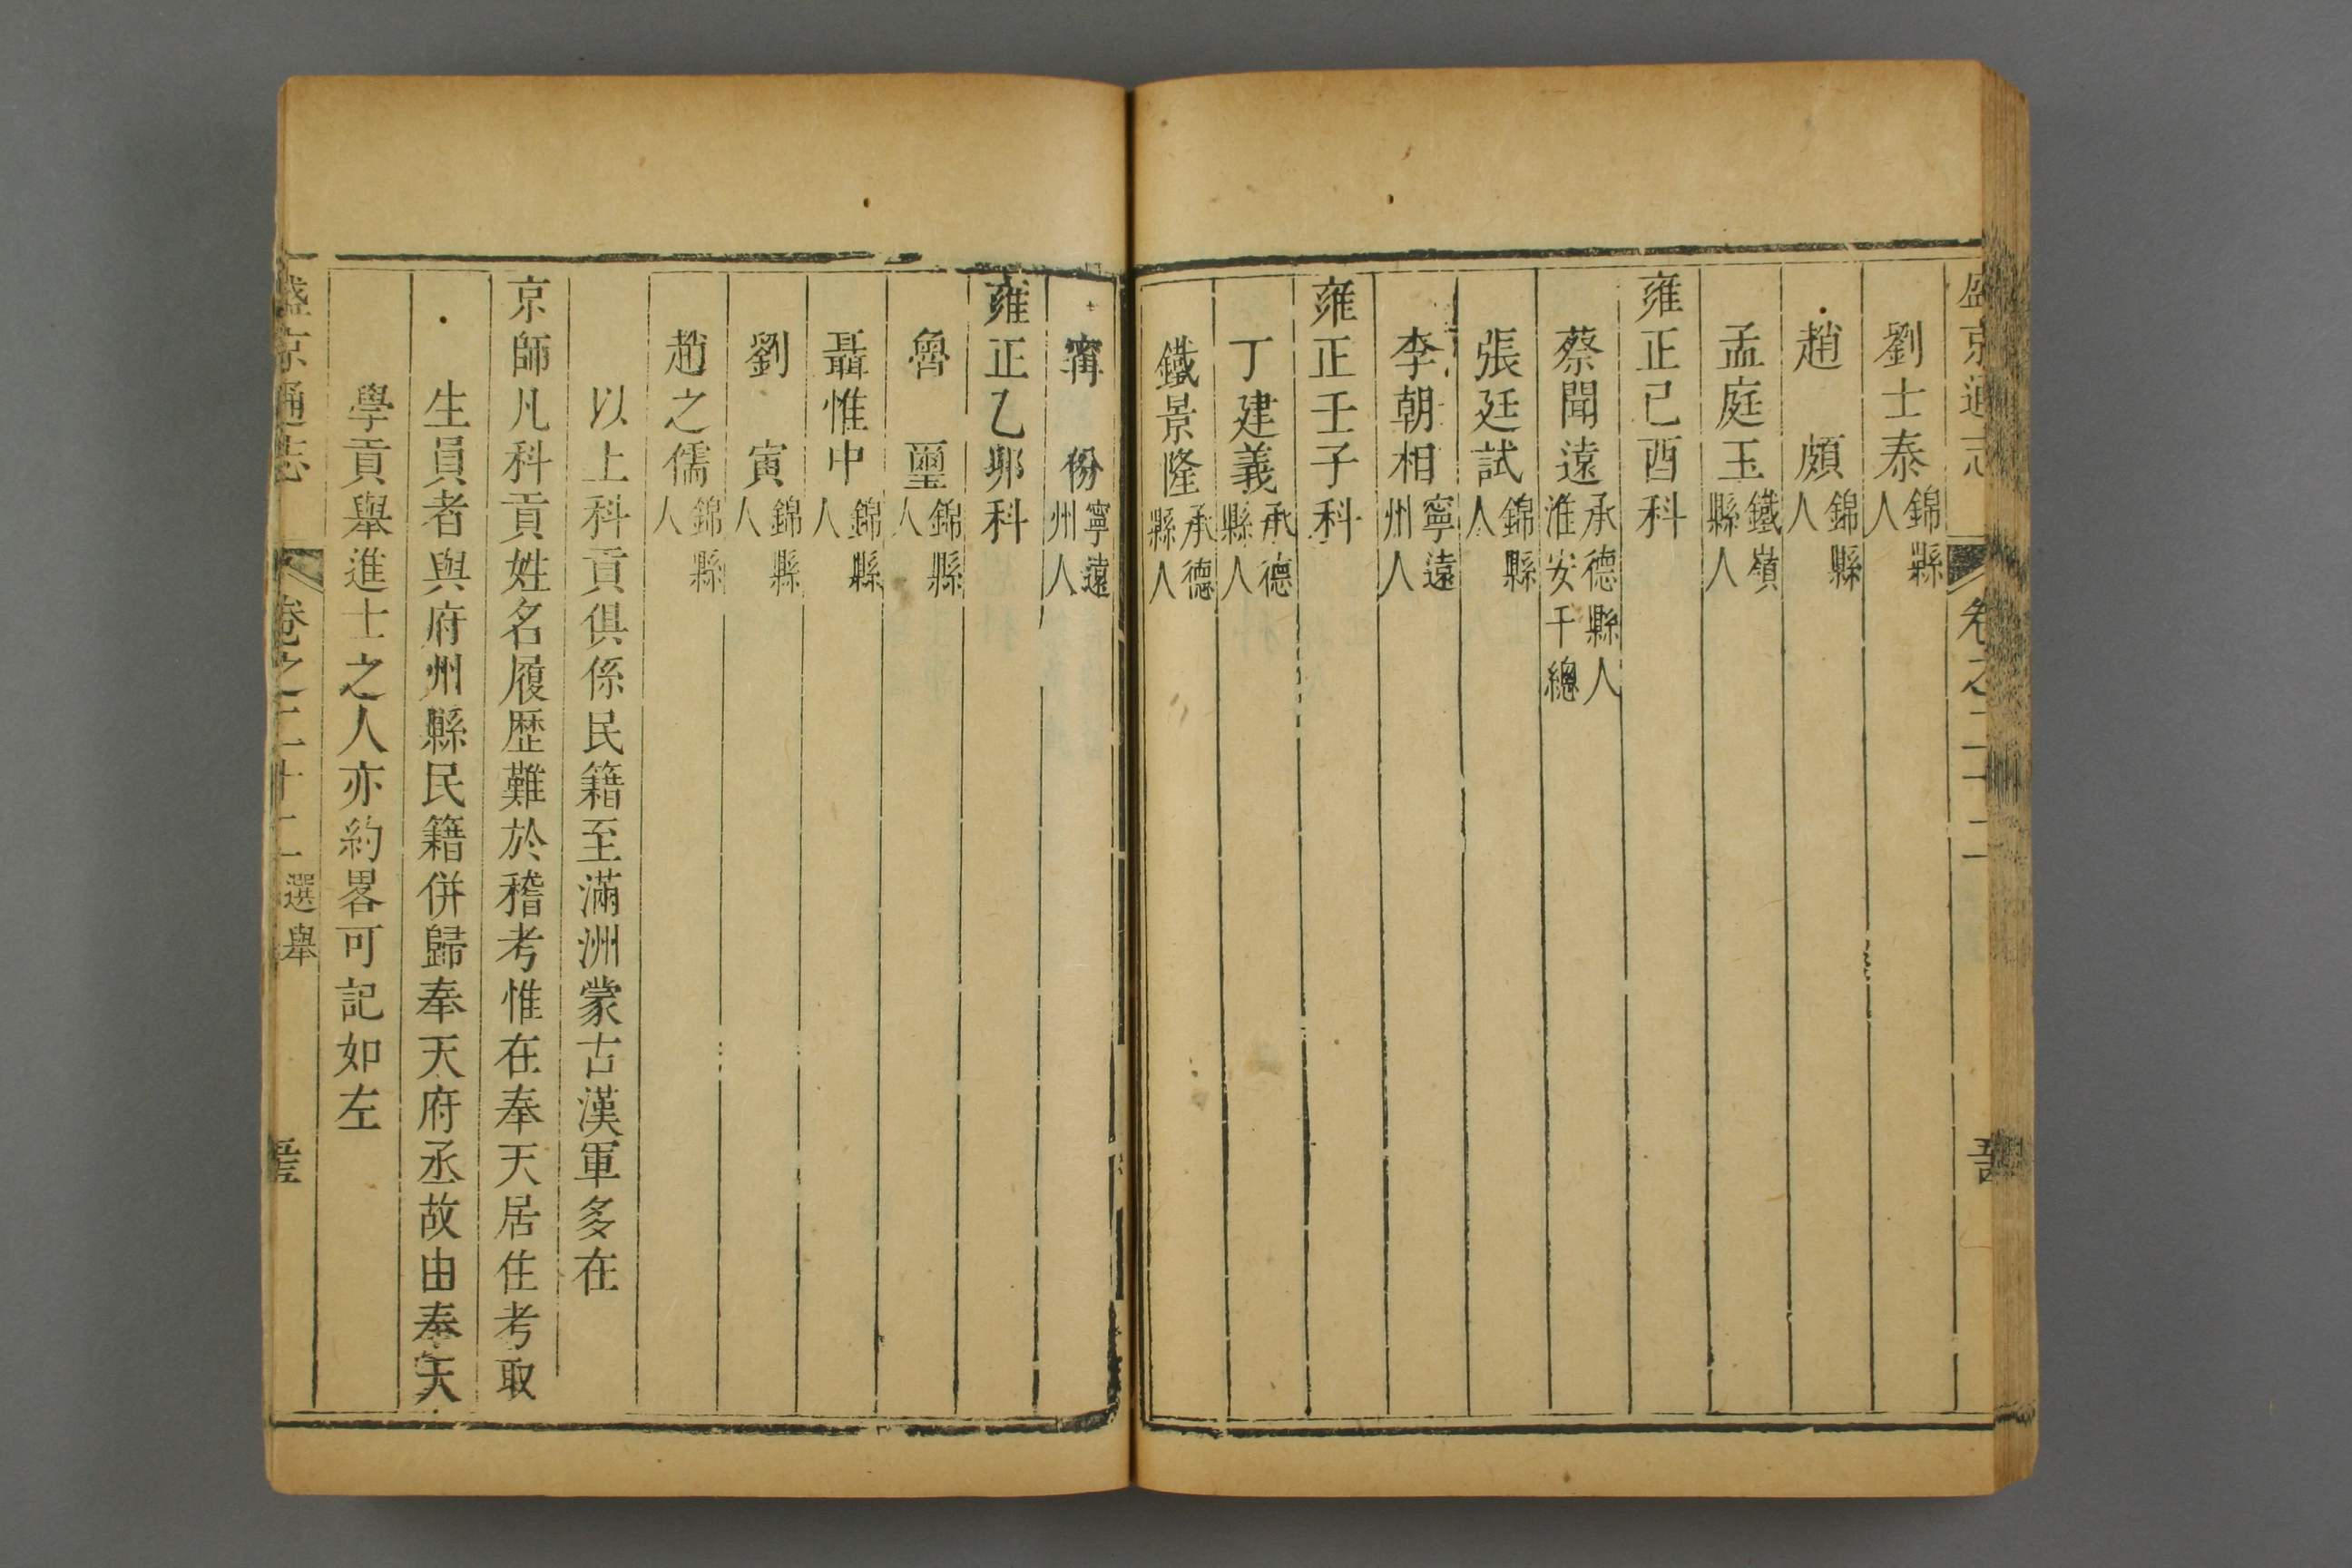 盛京通志 卷之二十二
劉士泰 錦縣人
趙 頗 錦縣人
孟庭玉 鐵嶺縣人
雍正己酉科
蔡聞遠 承德縣人淮安千總
張廷試 錦縣人
李朝相 寧遠州人
雍正壬子科
丁建義 承德縣人
鐵景隆 承德縣人
甯 份 寧遠州人
雍正乙卯科
魯 璽 錦縣人
聶惟中 錦縣人
劉 寅 錦縣人
趙之儒 錦縣人
以上科貢俱係民籍至滿洲蒙古漢軍多在
京師凡科貢姓名履歷難於稽考惟在奉天居住考取
生員者與府州縣民籍併歸奉天府丞故由奉天
學貢舉進士之人亦約畧可記如左
盛京通志 卷之二十二 選舉